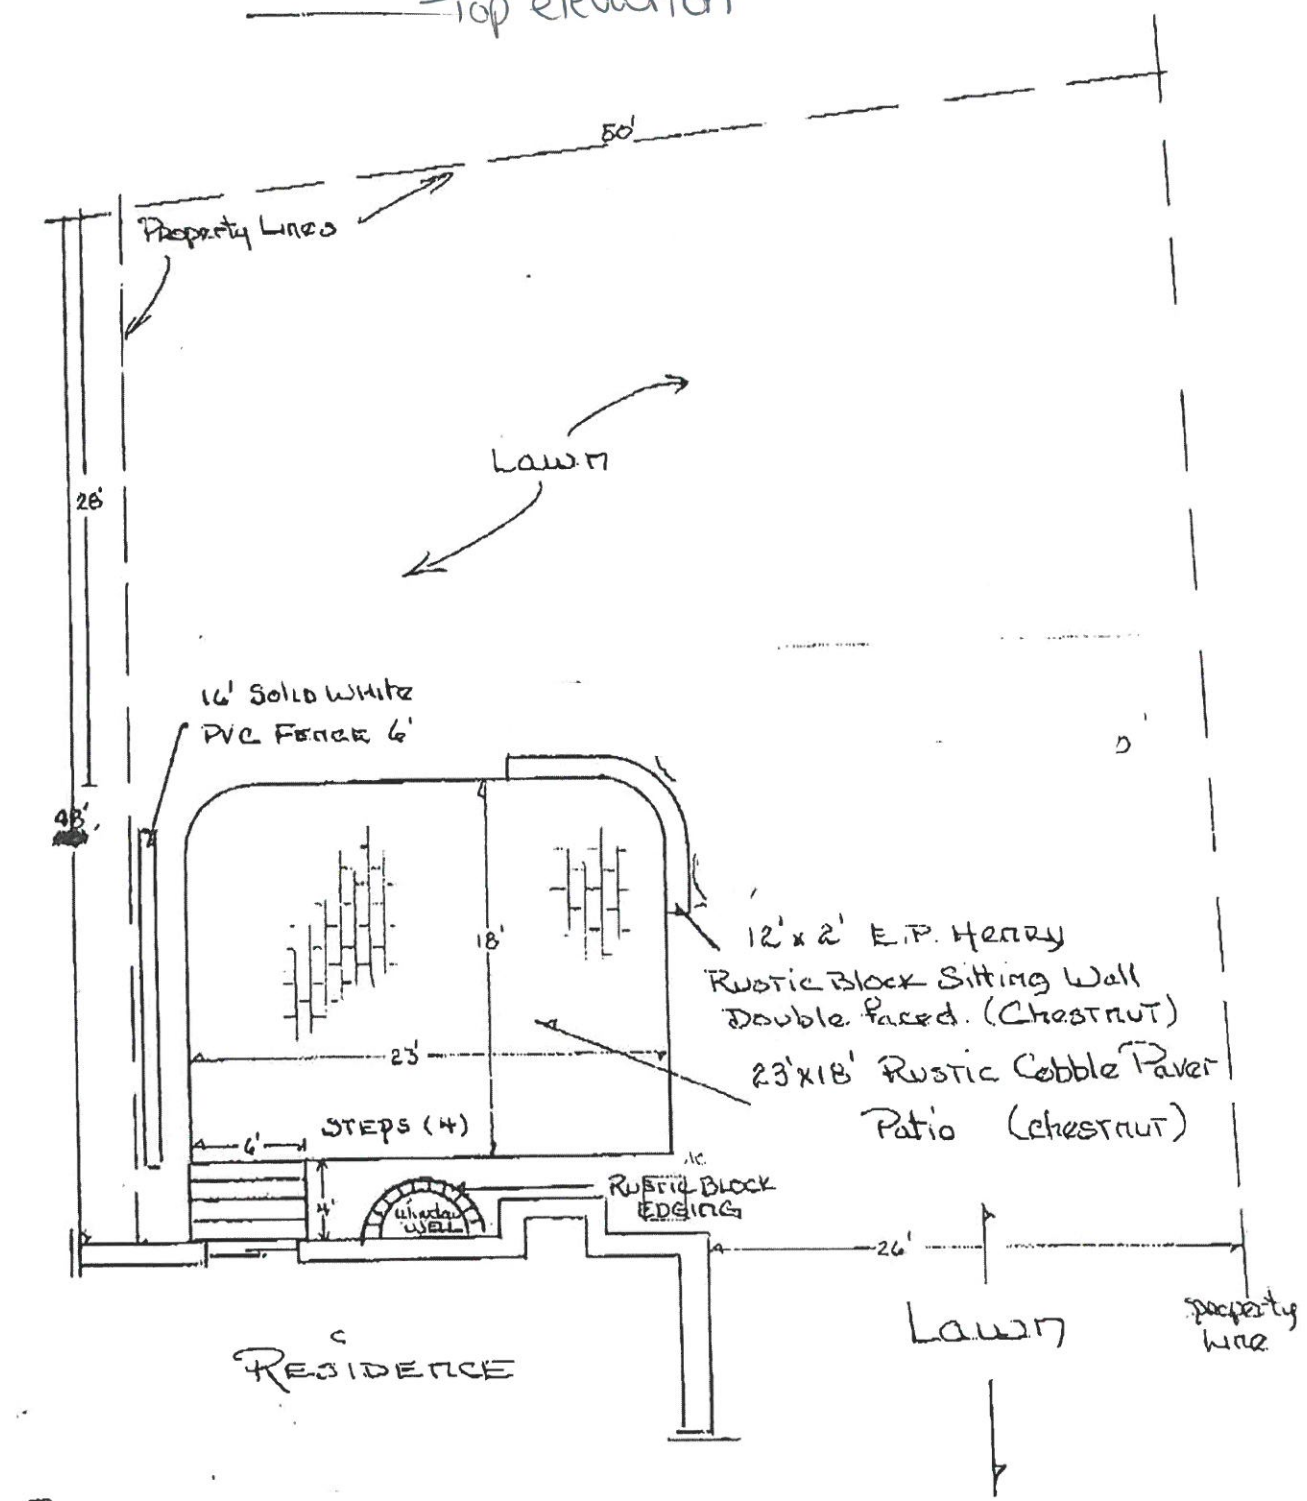 Top elevation
50'
Property Lines
Lawn
28'
16' Solid White
PVC Fence 6'
48'
18'
12' x 2' E.P. Henry
Rustic Block Sitting Wall
Double faced. (Chestnut)
23'
23'x18' Rustic Cobble Paver
Patio (Chestnut)
6'
STEPS (4)
4'
Window
WELL
RUSTIC BLOCK
EDGING
26'
Lawn
property
Line
RESIDENCE